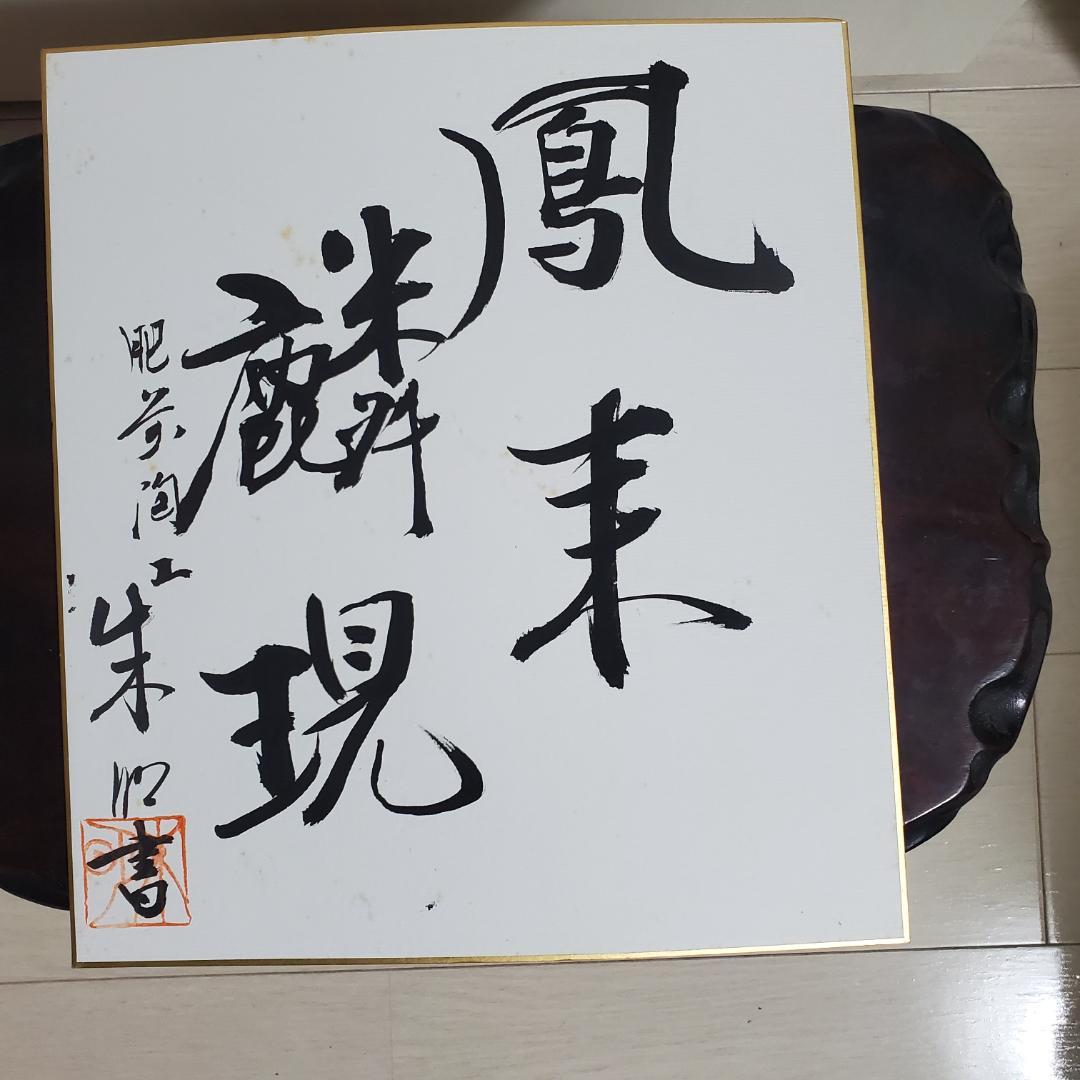 鳳来
麟現
肥前陶工朱
書